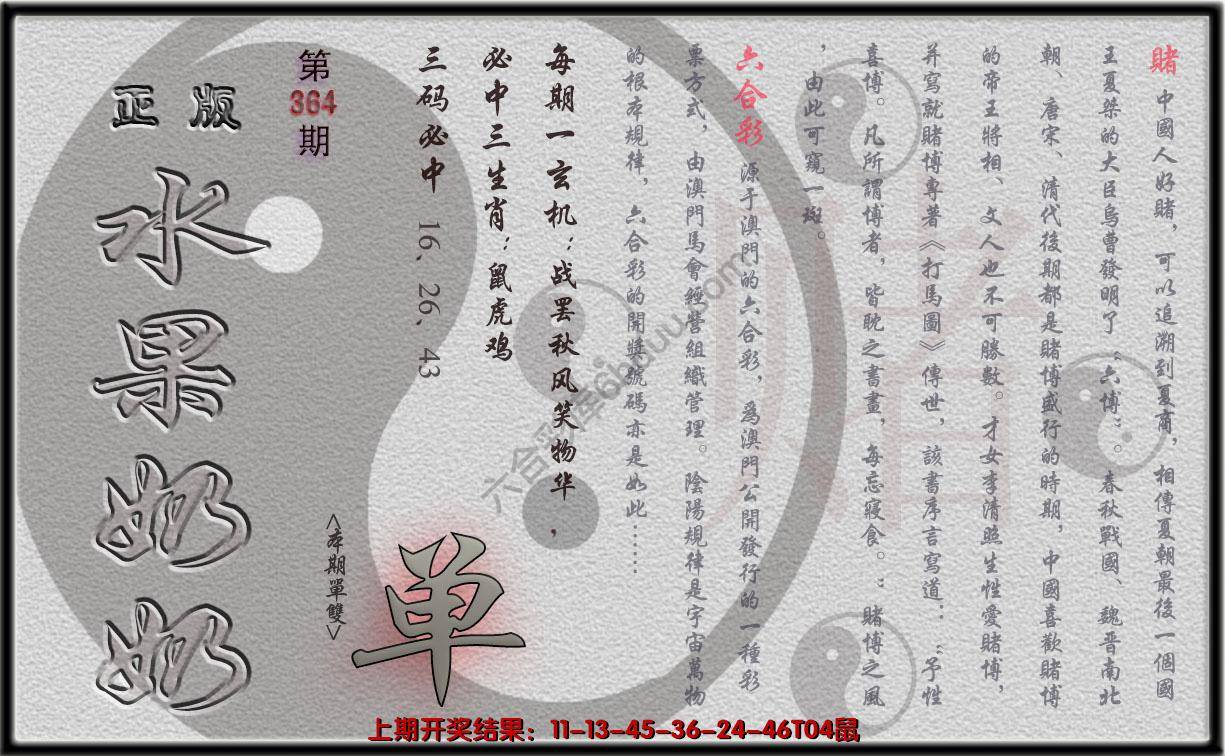 賭 中國人好賭，可以追溯到夏商，相傳夏朝最後一個國
王夏桀的大臣烏曹發明了“六博”。春秋戰國、魏晋南北
朝、唐宋、清代後期都是賭博盛行的時期，中國喜歡賭博
的帝王將相、文人也不可勝數。才女李清照生性愛賭博，
并寫就賭博專著《打馬圖》傳世，該書序言寫道：“予性
喜博。凡所謂博者，皆耽之書畫，每忘寢食。”賭博之風
，由此可窺一斑。
六合彩 源于澳門的六合彩，爲澳門公開發行的一種彩
票方式，由澳門馬會經營組織管理。陰陽規律是宇宙萬物
的根本規律，六合彩的開獎號碼亦是如此……
每期一玄机：战罢秋风笑物华，
必中三生肖：鼠虎鸡
三码必中 16、26、43
第364期
正版
水果奶奶
<本期單雙>
单
上期开奖结果：11-13-45-36-24-46T04鼠